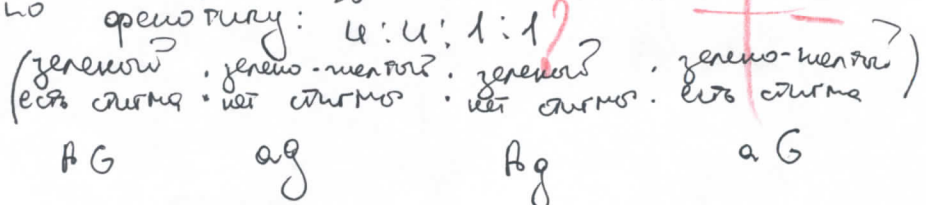 по фенотипу: 4:4:1:1?
(зеленый : зелено-желтый : зеленый : зелено-желтый)
есть стигма : нет стигмы : нет стигмы : есть стигма
AG ag Ag aG